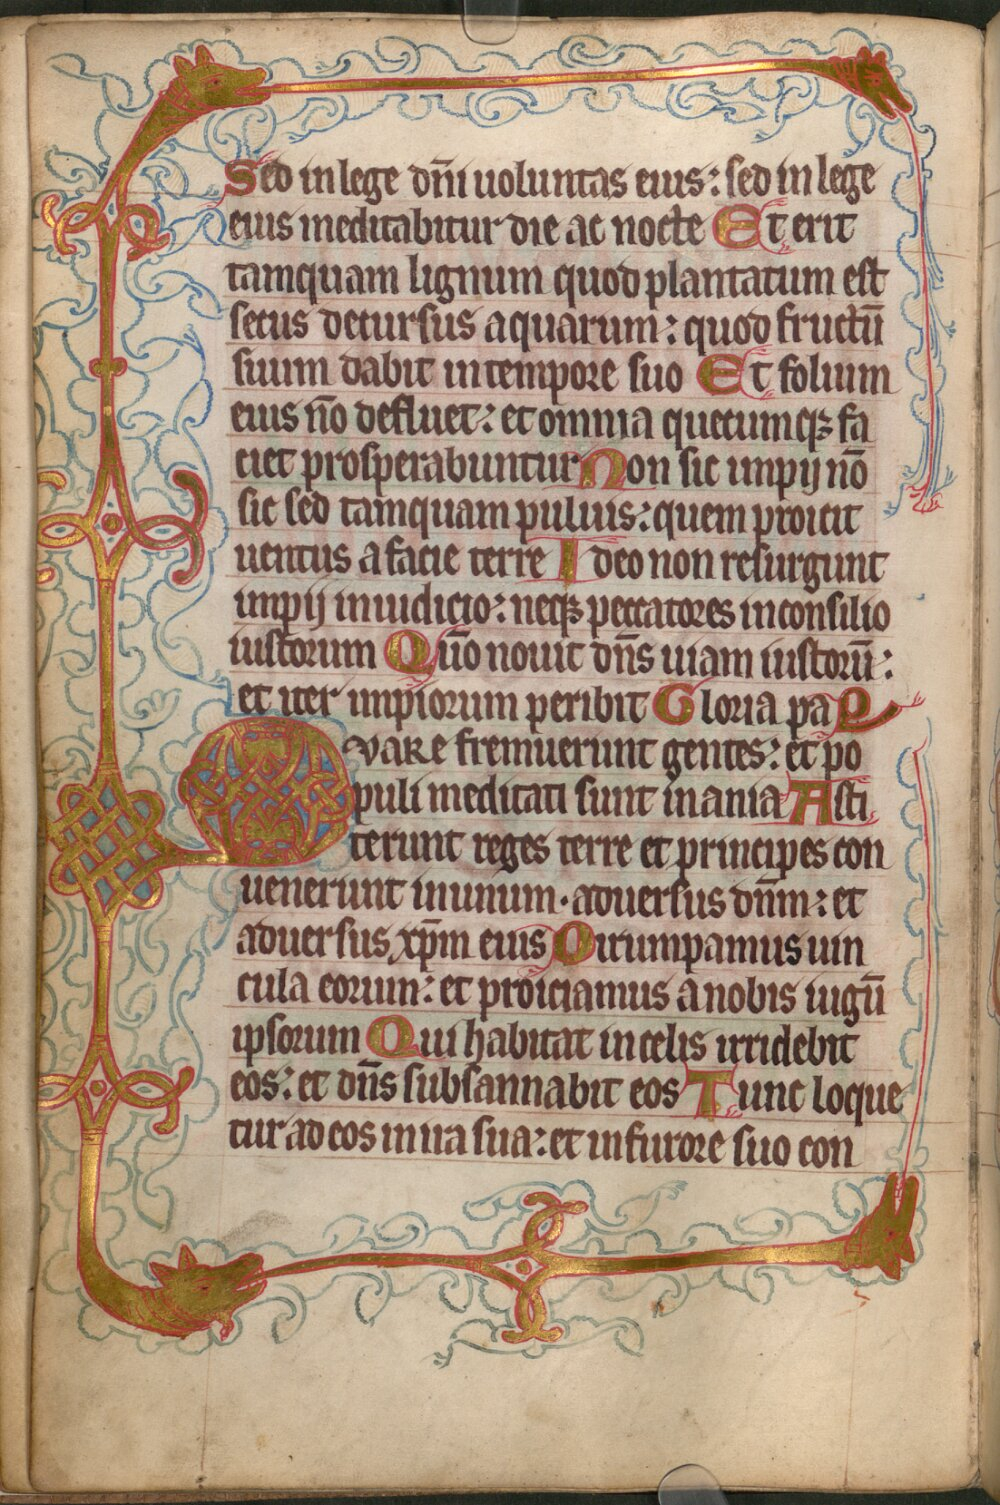 Sed in lege dñi uoluntas eius: sed in lege
eius meditabitur die ac nocte Et erit
tamquam lignum quod plantatum est
secus decursus aquarum: quod fructū
suum dabit in tempore suo Et folium
eius ño defluet: et omnia quecumqꝫ fa
ciet prosperabuntur Non sic impij nō
sic sed tamquam puluis: quem proicit
uentus a facie terre Ideo non resurgunt
impij in iudicio: neqꝫ peccatores in consilio
iustorum Qūo nouit dñs uiam iustorū:
et iter impiorum peribit Gloria pa P
QVARE fremuerunt gentes: et po
puli meditati sunt inania Asti
terunt reges terre et principes con
uenerunt in unum · aduersus dñm: et
aduersus xp̄m eius Dirumpamus uin
cula eorum: et proiciamus a nobis iugū
ipsorum Qui habitat in celis irridebit
eos: et dñs subsannabit eos Tunc loque
tur ad eos in ira sua: et in furore suo con